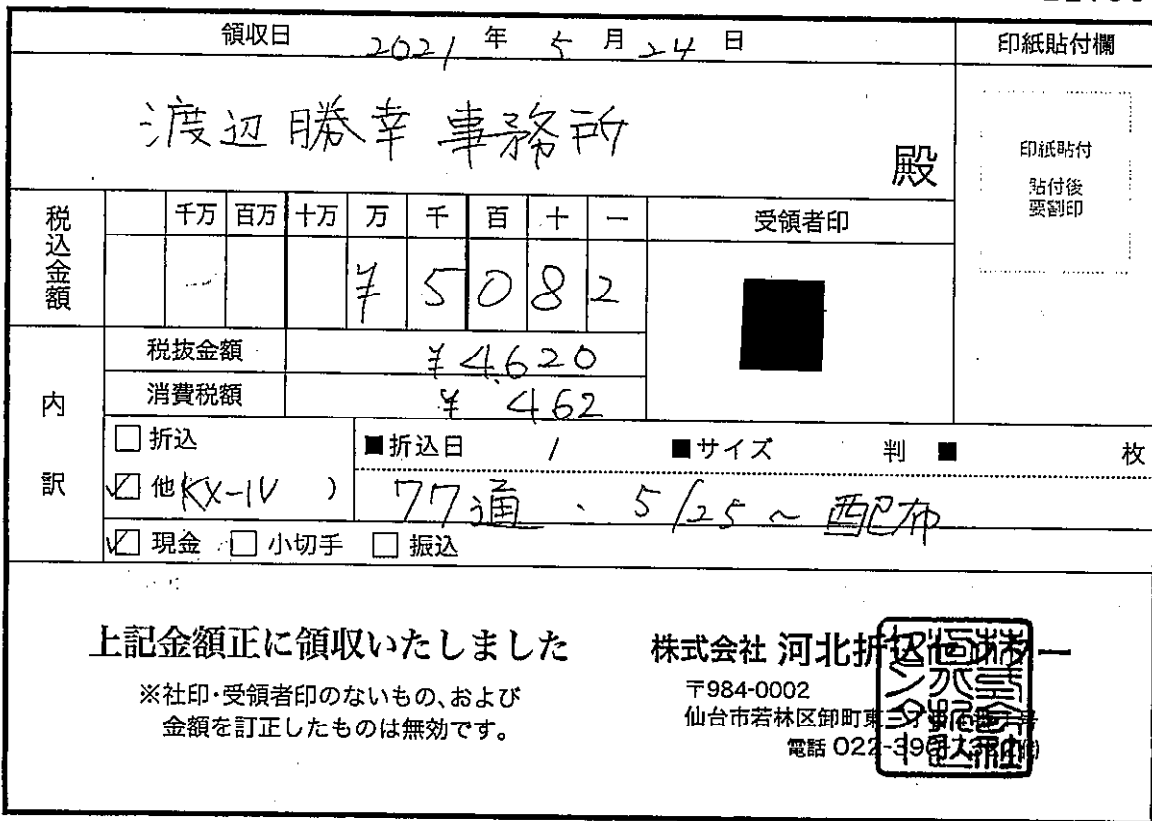 領収日 2021 年 5 月 24 日
印紙貼付欄
渡辺勝幸事務所 殿
印紙貼付
貼付後
要割印
税込金額
千万 百万 十万 万 千 百 十 一
受領者印
¥ 5 0 8 2
内訳
税抜金額 ¥4,620
消費税額 ¥ 462
□ 折込
■折込日 / ■サイズ 判 ■ 枚
☑ 他(KX-IV )
77通、5/25~配布
☑ 現金 □ 小切手 □ 振込
上記金額正に領収いたしました
※社印・受領者印のないもの、および
金額を訂正したものは無効です。
株式会社 河北折込センター
〒984-0002
仙台市若林区卸町東三丁目
電話 022-390-
株式会社河北折込センター